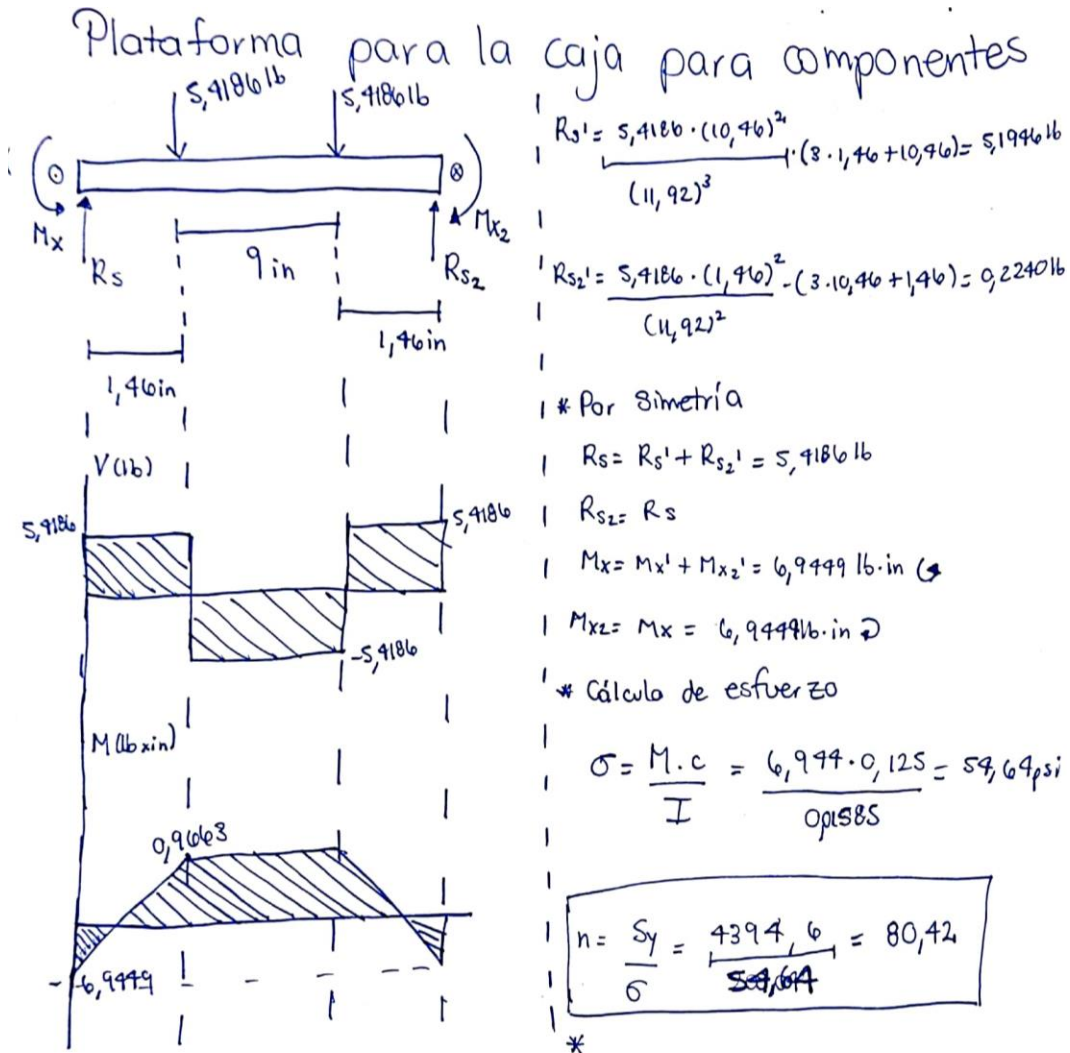 Plataforma para la caja para componentes
5,4186 lb
5,4186 lb
Mx
Rs
9 in
Rs2
Mx2
1,46in
1,46in
V(lb)
5,4186
5,4186
-5,4186
M(lbxin)
0,9663
-6,9449
Rs' = 5,4186 · (10,46)² / (11,92)³ · (3 · 1,46 + 10,46) = 5,1946 lb
Rs2' = 5,4186 · (1,46)² / (11,92)² - (3 · 10,46 + 1,46) = 0,2240 lb
* Por Simetría
Rs = Rs' + Rs2' = 5,4186 lb
Rs2 = Rs
Mx = Mx' + Mx2' = 6,9449 lb·in
Mx2 = Mx = 6,9449lb·in
* Cálculo de esfuerzo
σ = M.c / I = 6,944 · 0,125 / 0,01585 = 54,64psi
n = Sy / σ = 4394,6 / 54,64 = 80,42
*